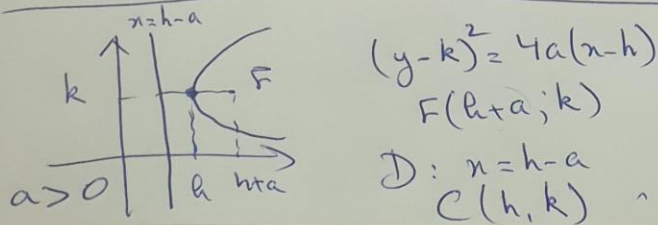 x=h-a
k
F
a>0
h
h+a
(y-k)²=4a(x-h)
F(h+a;k)
D: x=h-a
C(h,k)